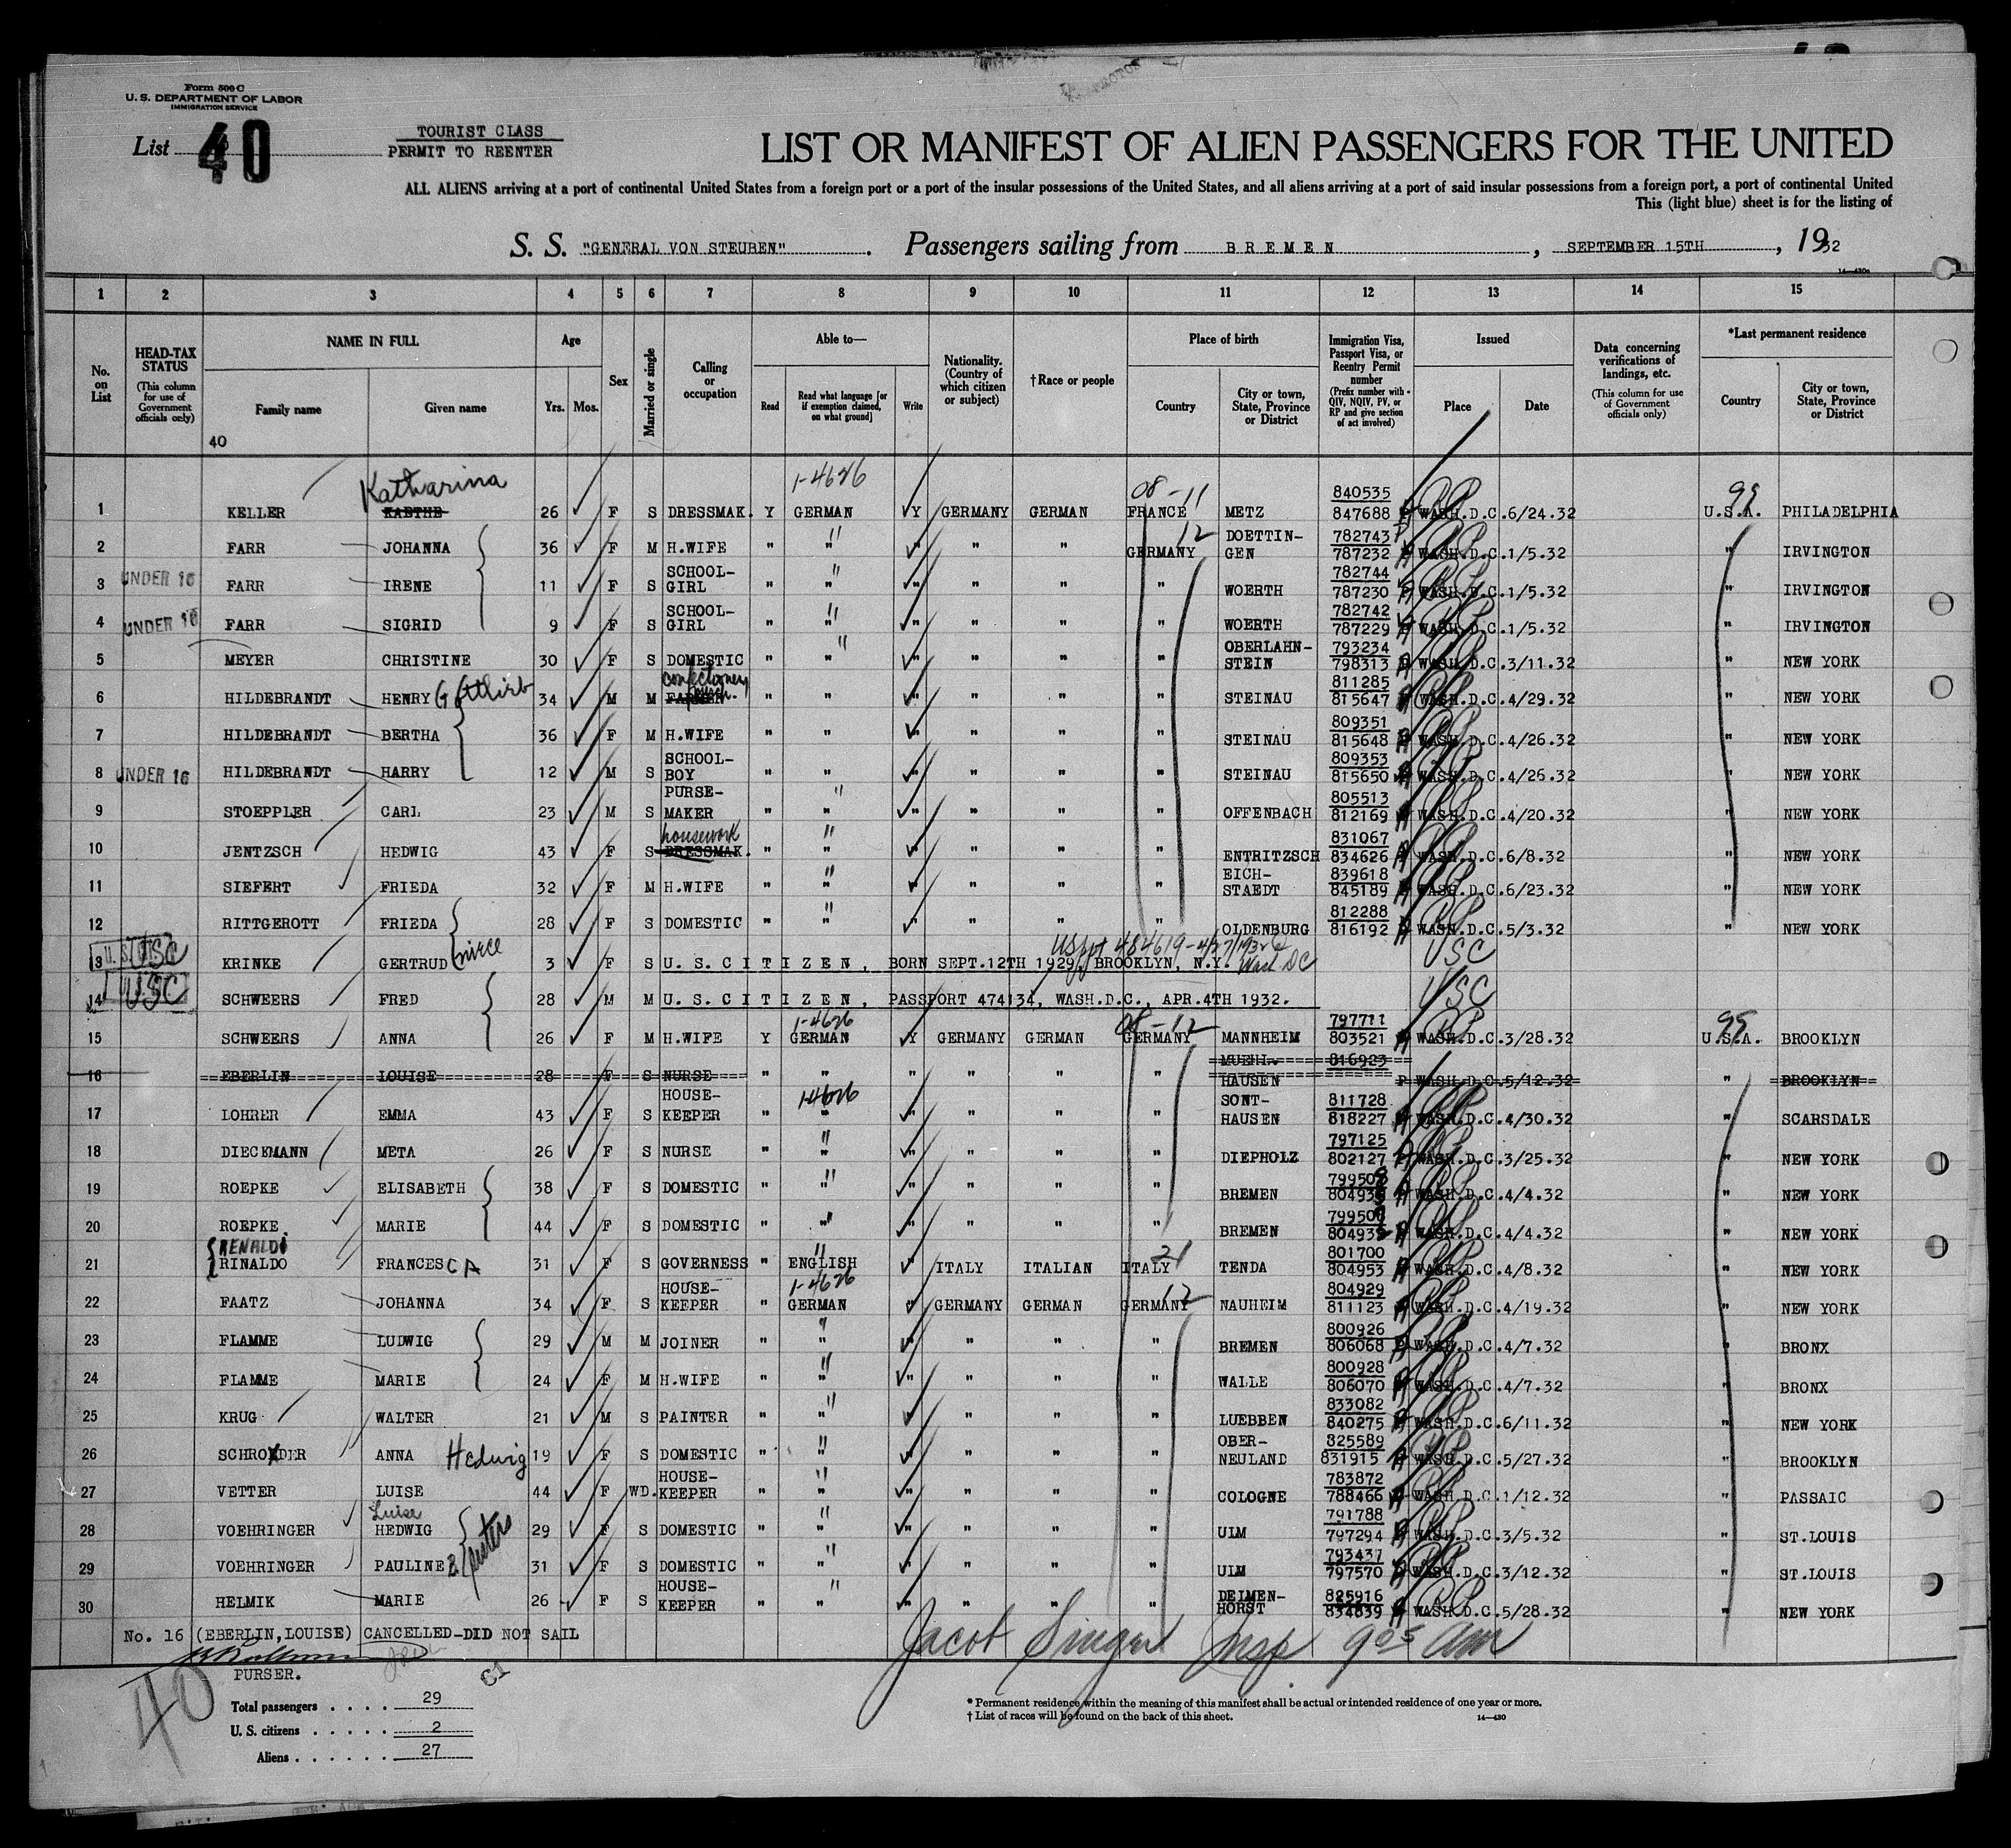 Form 500 C
U. S. DEPARTMENT OF LABOR
IMMIGRATION SERVICE
List 40
TOURIST CLASS
PERMIT TO REENTER
LIST OR MANIFEST OF ALIEN PASSENGERS FOR THE UNITED
ALL ALIENS arriving at a port of continental United States from a foreign port or a port of the insular possessions of the United States, and all aliens arriving at a port of said insular possessions from a foreign port, a port of continental United
This (light blue) sheet is for the listing of
S. S. "GENERAL VON STEUBEN". Passengers sailing from BREMEN, SEPTEMBER 15TH, 1932
14—430a
1 2 3 4 5 6 7 8 9 10 11 12 13 14 15
No. on List
HEAD-TAX STATUS (This column for use of Government officials only)
NAME IN FULL
Family name Given name
40
Age Yrs. Mos.
Sex
Married or single
Calling or occupation
Able to—
Read Read what language [or if exemption claimed, on what ground] Write
Nationality. (Country of which citizen or subject)
†Race or people
Place of birth
Country City or town, State, Province or District
Immigration Visa, Passport Visa, or Reentry Permit number (Prefix number with QIV, NQIV, PV, or RP and give section of act involved)
Issued
Place Date
Data concerning verifications of landings, etc. (This column for use of Government officials only)
*Last permanent residence
Country City or town, State, Province or District
1 KELLER KAETHE Katharina 26 F S DRESSMAK. Y GERMAN 1-4626 Y GERMANY GERMAN FRANCE 08-11 METZ 840535 847688 P WASH.D.C. 6/24.32 U.S.A. 95 PHILADELPHIA
2 FARR JOHANNA 36 F M H.WIFE " " " " " GERMANY 12 DOETTIN-GEN 782743 787232 P WASH.D.C. 1/5.32 " IRVINGTON
3 UNDER 16 FARR IRENE 11 F S SCHOOL-GIRL " " " " " " WOERTH 782744 787230 P WASH.D.C. 1/5.32 " IRVINGTON
4 UNDER 16 FARR SIGRID 9 F S SCHOOL-GIRL " " " " " " WOERTH 782742 787229 P WASH.D.C. 1/5.32 " IRVINGTON
5 MEYER CHRISTINE 30 F S DOMESTIC " " " " " " OBERLAHN-STEIN 793234 798313 P WASH.D.C. 3/11.32 " NEW YORK
6 HILDEBRANDT HENRY Gottlieb 34 M M FARMER confectionery " " " " " " STEINAU 811285 815647 P WASH.D.C. 4/29.32 " NEW YORK
7 HILDEBRANDT BERTHA 36 F M H.WIFE " " " " " " STEINAU 809351 815648 P WASH.D.C. 4/26.32 " NEW YORK
8 UNDER 16 HILDEBRANDT HARRY 12 M S SCHOOL-BOY " " " " " " STEINAU 809353 815650 P WASH.D.C. 4/26.32 " NEW YORK
9 STOEPPLER CARL 23 M S PURSE-MAKER " " " " " " OFFENBACH 805513 812169 P WASH.D.C. 4/20.32 " NEW YORK
10 JENTZSCH HEDWIG 43 F S DRESSMAK. housework " " " " " " ENTRITZSCH 831067 834626 P WASH.D.C. 6/8.32 " NEW YORK
11 SIEFERT FRIEDA 32 F M H.WIFE " " " " " " EICH-STAEDT 839618 845189 P WASH.D.C. 6/23.32 " NEW YORK
12 RITTGEROTT FRIEDA 28 F S DOMESTIC " " " " " " OLDENBURG 812288 816192 P WASH.D.C. 5/3.32 " NEW YORK
13 USC KRINKE GERTRUD niece 3 F S U. S. CITIZEN, BORN SEPT.12TH 1929, BROOKLYN, N.Y. US ppt 484619-4/27/1932 Wash DC USC
14 USC SCHWEERS FRED 28 M M U. S. CITIZEN, PASSPORT 474134, WASH.D.C., APR.4TH 1932. USC
15 SCHWEERS ANNA 26 F M H.WIFE Y GERMAN 1-4626 Y GERMANY GERMAN GERMANY 08-12 MANNHEIM 797711 803521 P WASH.D.C. 3/28.32 U.S.A. 95 BROOKLYN
16 EBERLIN LOUISE 28 F S NURSE " " " " " " MUEHL-HAUSEN 816923 P WASH.D.C. 5/12.32 " BROOKLYN
17 LOHRER EMMA 43 F S HOUSE-KEEPER " " 1-4626 " " " " SONT-HAUSEN 811728 818227 P WASH.D.C. 4/30.32 " SCARSDALE
18 DIECKMANN META 26 F S NURSE " " " " " " DIEPHOLZ 797125 802127 P WASH.D.C. 3/25.32 " NEW YORK
19 ROEPKE ELISABETH 38 F S DOMESTIC " " " " " " BREMEN WASH.D.C. 4/4.32 " NEW YORK
20 ROEPKE MARIE 44 F S DOMESTIC " " " " " " BREMEN WASH.D.C. 4/4.32 " NEW YORK
21 RENALDI RINALDO FRANCESCA 31 F S GOVERNESS " ENGLISH " ITALY ITALIAN ITALY 21 TENDA 801700 804953 P WASH.D.C. 4/8.32 " NEW YORK
22 FAATZ JOHANNA 34 F S HOUSE-KEEPER " GERMAN 1-4626 " GERMANY GERMAN GERMANY 12 NAUHEIM 804929 811123 P WASH.D.C. 4/19.32 " NEW YORK
23 FLAMME LUDWIG 29 M M JOINER " " " " " " BREMEN 800926 806068 P WASH.D.C. 4/7.32 " BRONX
24 FLAMME MARIE 24 F M H.WIFE " " " " " " WALLE 800928 806070 P WASH.D.C. 4/7.32 " BRONX
25 KRUG WALTER 21 M S PAINTER " " " " " " LUEBBEN 833082 840275 P WASH.D.C. 6/11.32 " NEW YORK
26 SCHROEDER ANNA Hedwig 19 F S DOMESTIC " " " " " " OBER-NEULAND 825589 831915 P WASH.D.C. 5/27.32 " BROOKLYN
27 VETTER LUISE 44 F WD. HOUSE-KEEPER " " " " " " COLOGNE 783872 788466 P WASH.D.C. 1/12.32 " PASSAIC
28 VOEHRINGER HEDWIG Luise 29 F S DOMESTIC " " " " " " ULM 791788 797294 P WASH.D.C. 3/5.32 " ST.LOUIS
29 VOEHRINGER PAULINE B sisters 31 F S DOMESTIC " " " " " " ULM 793437 797570 P WASH.D.C. 3/12.32 " ST.LOUIS
30 HELMIK MARIE 26 F S HOUSE-KEEPER " " " " " " DELMEN-HORST 825916 834839 P WASH.D.C. 5/28.32 " NEW YORK
No. 16 (EBERLIN, LOUISE) CANCELLED-DID NOT SAIL
Jacob Singer Insp 9 05 am
PURSER.
40
Total passengers . . . . 29
U. S. citizens . . . . . 2
Aliens . . . . . . 27
* Permanent residence within the meaning of this manifest shall be actual or intended residence of one year or more.
† List of races will be found on the back of this sheet.
14—430